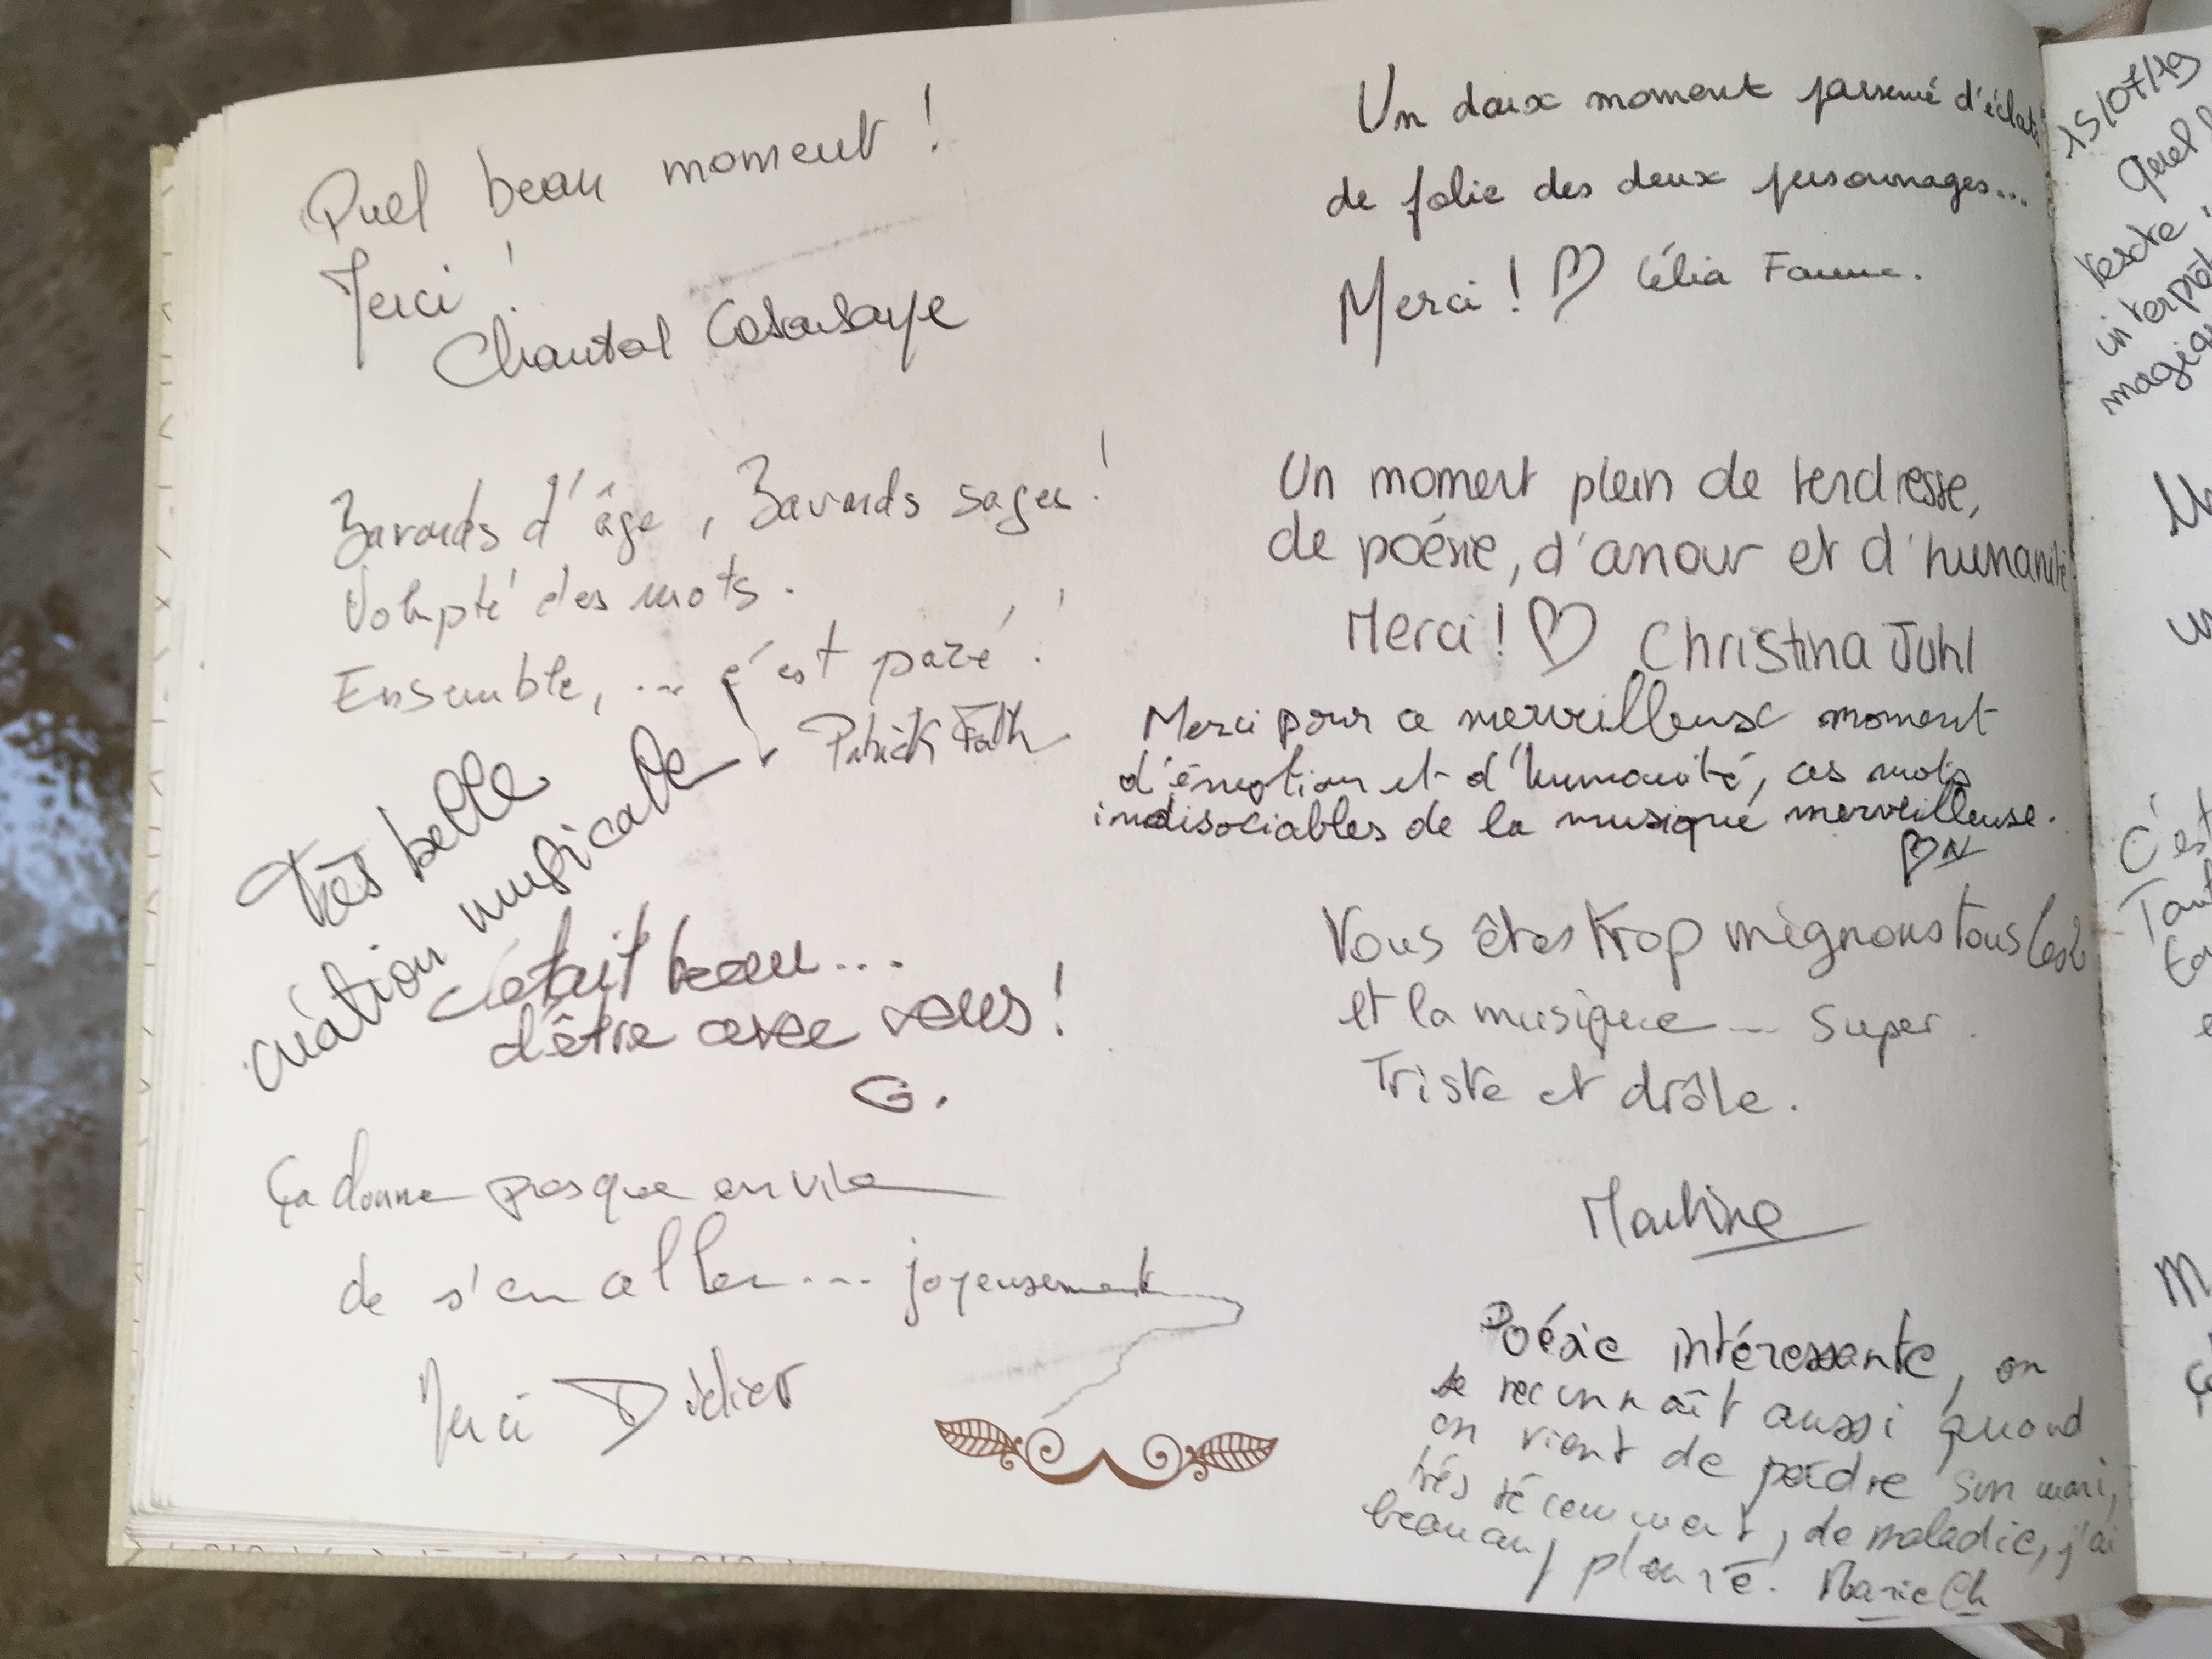 Quel beau moment !
Merci
Chantal
Bavards d'âge, Bavards sages !
Volupté des mots.
Ensemble, ... c'est paré !
Très belle
création musicale,
C'était beau...
d'être avec vous !
G.
Ça donne presque envie
de s'en aller... joyeusement
Merci Didier
Un doux moment parsemé d'éclats
de folie des deux personnages...
Merci ! ♡ Célia
Un moment plein de tendresse,
de poésie, d'amour et d'humanité
Merci ! ♡ Christina Juhl
Merci pour ce merveilleuse moment
d'émotion et d'humanité, ces mots
indisociables de la musique, merveilleuse.
Vous êtes trop mignons tous les 2
et la musique... super.
Triste et drôle.
Martine
Poésie intéressante, on
se reconnaît aussi quand
on vient de perdre son mari,
très récemment, de maladie, j'ai
beaucoup pleuré. Marie Ch
quel
C'est